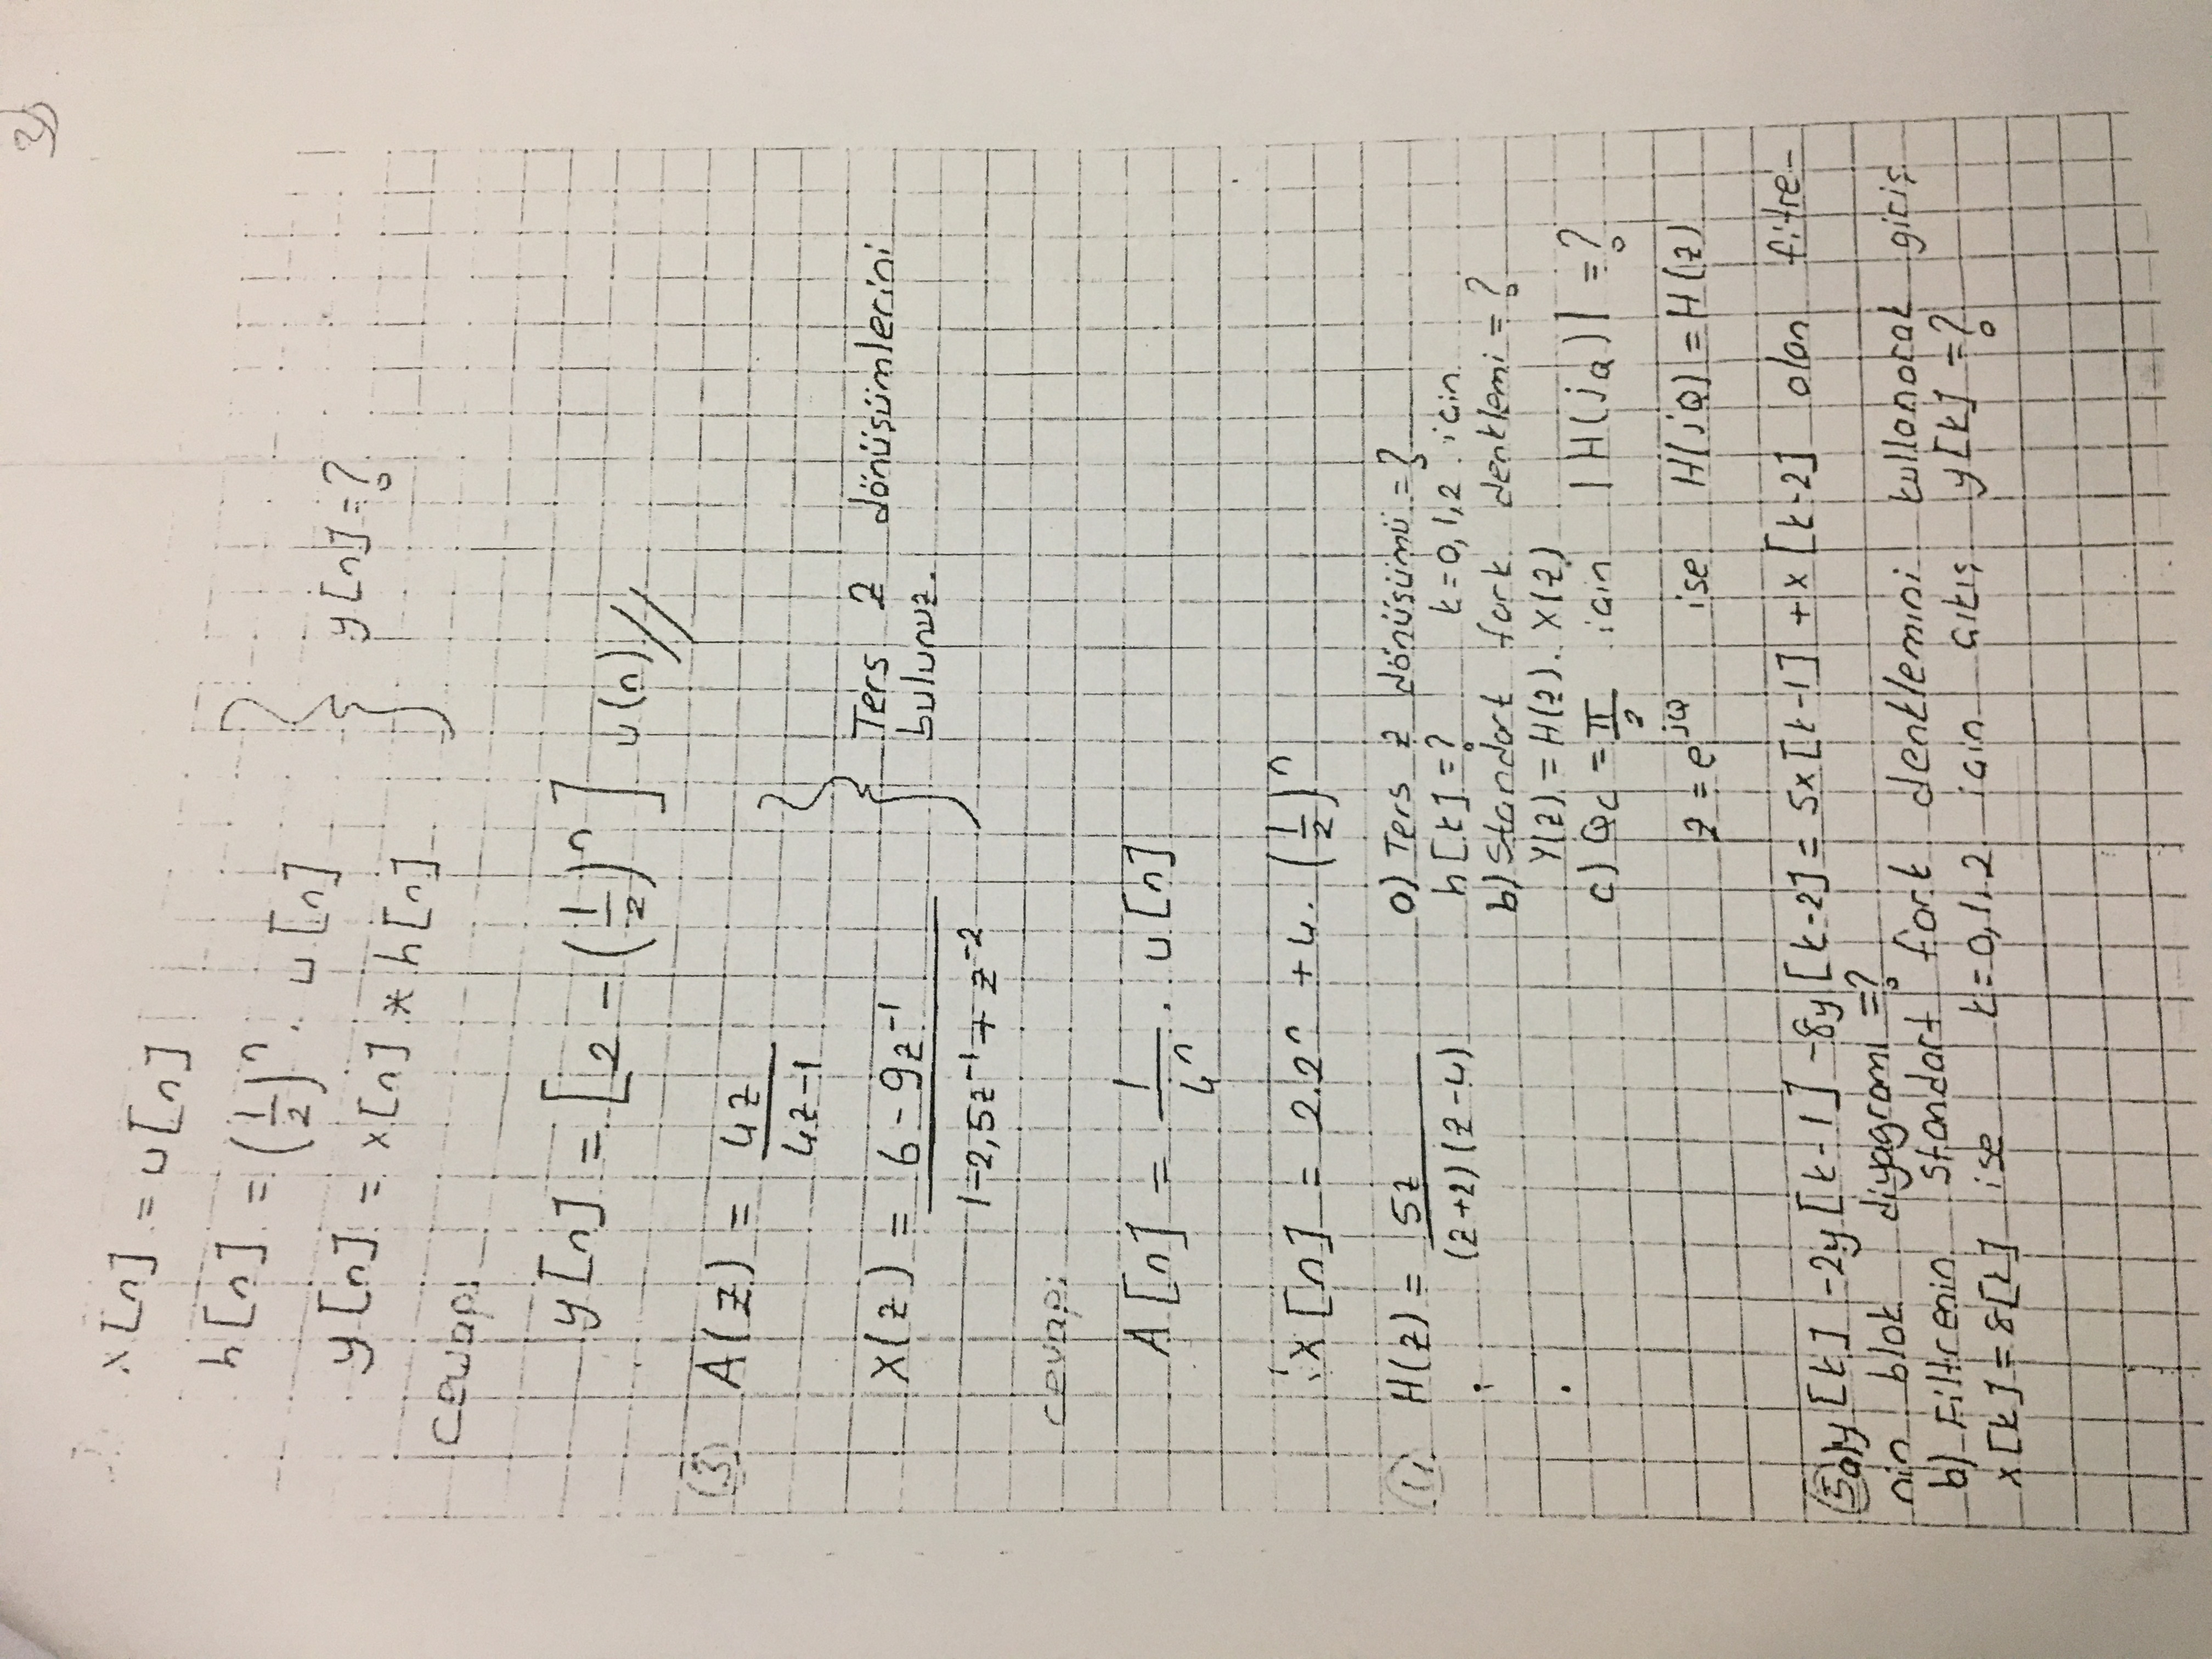 3)
x[n] = u[n]
h[n] = (1/2)^n . u[n]
y[n] = x[n] * h[n]
} y[n] = ?
cewap:
y[n] = [2 - (1/2)^n] u(n) //
③ A(z) = 4z / 4z-1
X(z) = 6 - 9z^-1 / 1-2,5z^-1 + z^-2
} Ters Z dönüşümlerini
bulunuz.
cevap:
A[n] = 1/4^n . u[n]
X[n] = 2.2^n + 4. (1/2)^n
H(z) = 5z / (z+2)(z-4)
a) Ters z dönüşümü = ?
h[k] = ? k=0,1,2 için
b) Standart fark denklemi = ?
Y(z) = H(z). X(z)
c) Qc = π/2 için |H(jQ)| = ?
z = e^jQ ise H(jQ) = H(z)
⑤ a) y[k] -2y[k-1] -8y[k-2] = 5x[k-1] + x[k-2] olan filtre-
nin blok diyagramı = ?
b) Filtrenin standart fark denklemini kullanarak giriş
x[k] = δ[k] ise k=0,1,2 için çıkış y[k] = ?